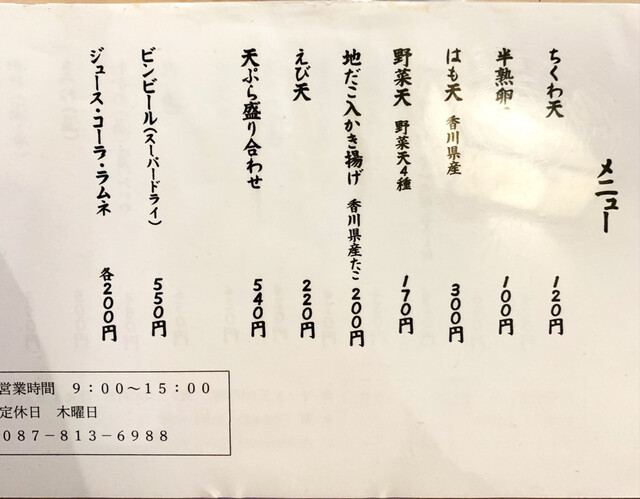 メニュー
ちくわ天 120円
半熟卵 100円
はも天 香川県産 300円
野菜天 野菜天4種 170円
地だこ入かき揚げ 香川県産たこ 200円
えび天 220円
天ぷら盛り合わせ 540円
ビンビール(スーパードライ) 550円
ジュース・コーラ・ラムネ 各200円
営業時間 9:00～15:00
定休日 木曜日
087-813-6988